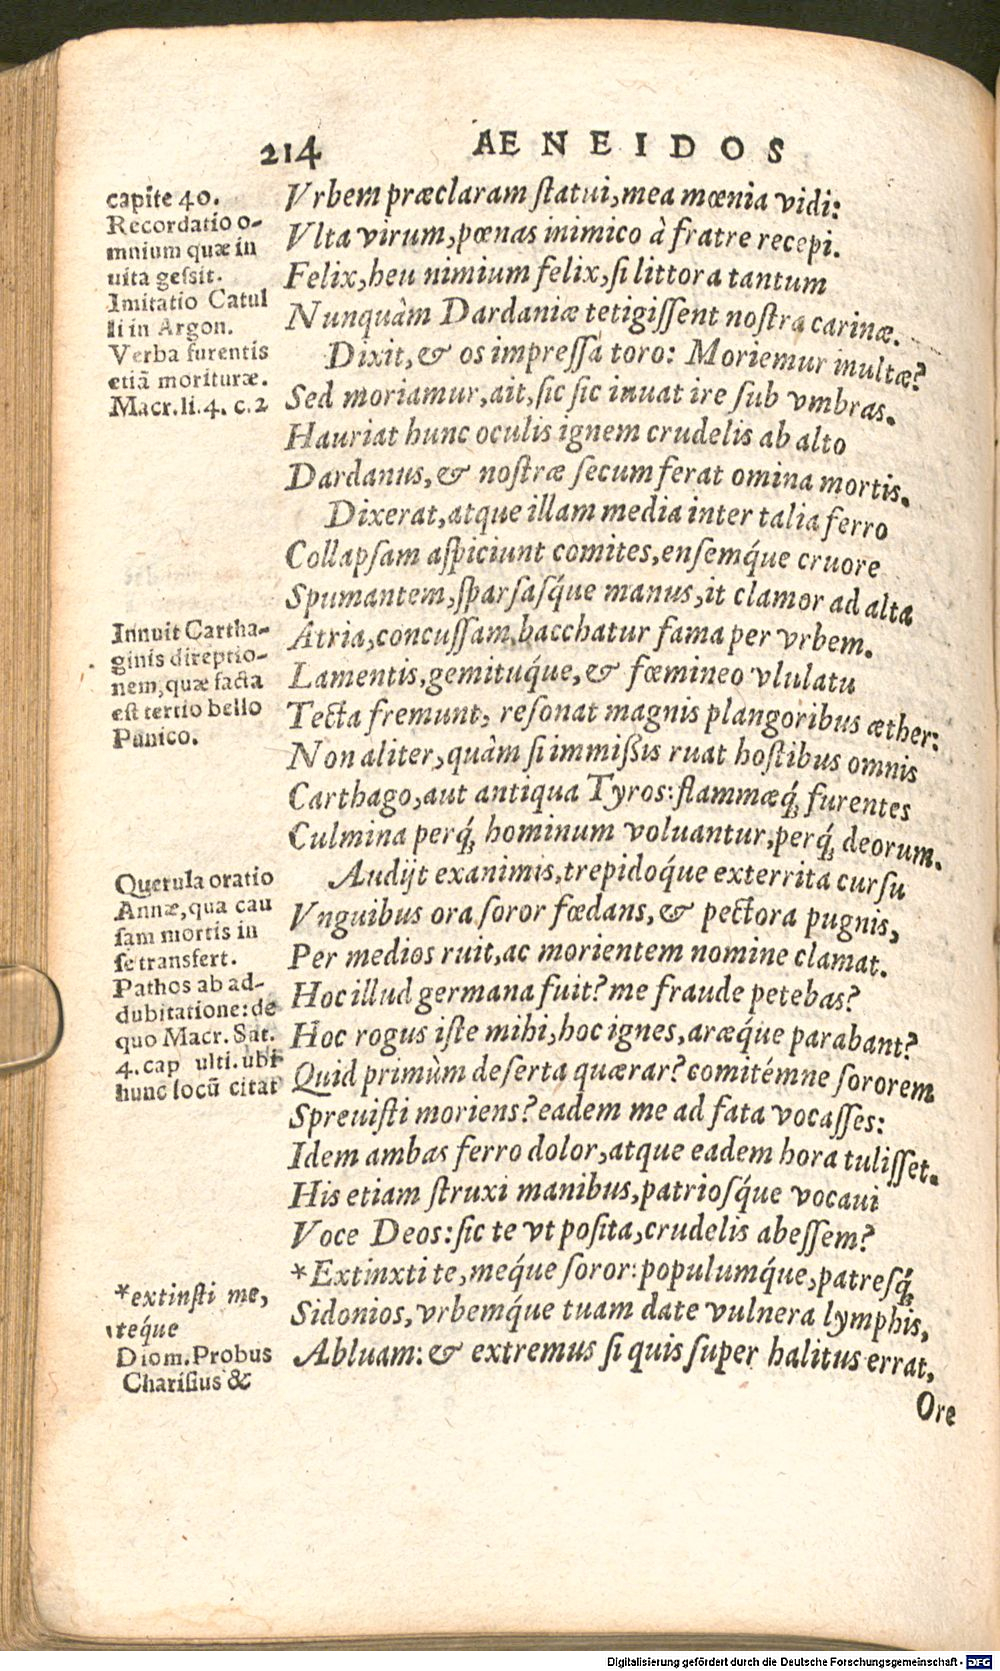 214 AENEIDOS
capite 40.
Recordatio o-
mnium quæ in
uita gessit.
Imitatio Catul
li in Argon.
Verba furentis
etiā morituræ.
Macr. li. 4. c. 2
Innuit Cartha-
ginis direptio-
nem, quæ facta
est tertio bello
Punico.
Querula oratio
Annæ, qua cau
sam mortis in
se transfert.
Pathos ab ad-
dubitatione: de
quo Macr. Sat.
4. cap ulti. ubi
hunc locū citat
*extinsti me,
teq́ue
Diom. Probus
Charisius &
Vrbem præclaram ſtatui, mea mœnia vidi:
Vlta virum, pœnas inimico à fratre recepi.
Felix, heu nimium felix, ſi littora tantum
Nunquàm Dardaniæ tetigiſſent noſtra carinæ.
Dixit, & os impreſſa toro: Moriemur inultæ?
Sed moriamur, ait, ſic ſic iuuat ire ſub vmbras.
Hauriat hunc oculis ignem crudelis ab alto
Dardanus, & noſtræ ſecum ferat omina mortis.
Dixerat, atque illam media inter talia ferro
Collapſam aſpiciunt comites, enſemq́ue cruore
Spumantem, ſparſaſq́ue manus, it clamor ad alta
Atria, concuſſam bacchatur fama per vrbem.
Lamentis, gemituq́ue, & fœmineo vlulatu
Tecta fremunt, reſonat magnis plangoribus æther:
Non aliter, quàm ſi immißis ruat hoſtibus omnis
Carthago, aut antiqua Tyros: flammæq́; furentes
Culmina perq́; hominum voluantur, perq́; deorum.
Audijt exanimis, trepidoq́ue exterrita curſu
Vnguibus ora ſoror fœdans, & pectora pugnis,
Per medios ruit, ac morientem nomine clamat.
Hoc illud germana fuit? me fraude petebas?
Hoc rogus iſte mihi, hoc ignes, aræq́ue parabant?
Quid primùm deſerta quærar? comitémne ſororem
Spreuiſti moriens? eadem me ad fata vocaſſes:
Idem ambas ferro dolor, atque eadem hora tuliſſet.
His etiam ſtruxi manibus, patrioſq́ue vocaui
Voce Deos: ſic te vt poſita, crudelis abeſſem?
*Extinxti te, meq́ue ſoror: populumq́ue, patreſq́;
Sidonios, vrbemq́ue tuam date vulnera lymphis,
Abluam: & extremus ſi quis ſuper halitus errat,
Ore
Digitalisierung gefördert durch die Deutsche Forschungsgemeinschaft - DFG